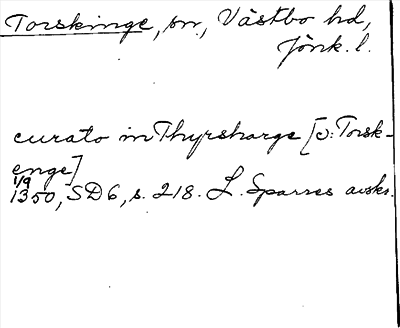 Torskinge, sn., Västbo hd,
Jönk. l.
curato in Thyrsharge [ɔ: Torsk-
enge]
1/9
1350, SD 6, s. 218. L. Sparres avskr.